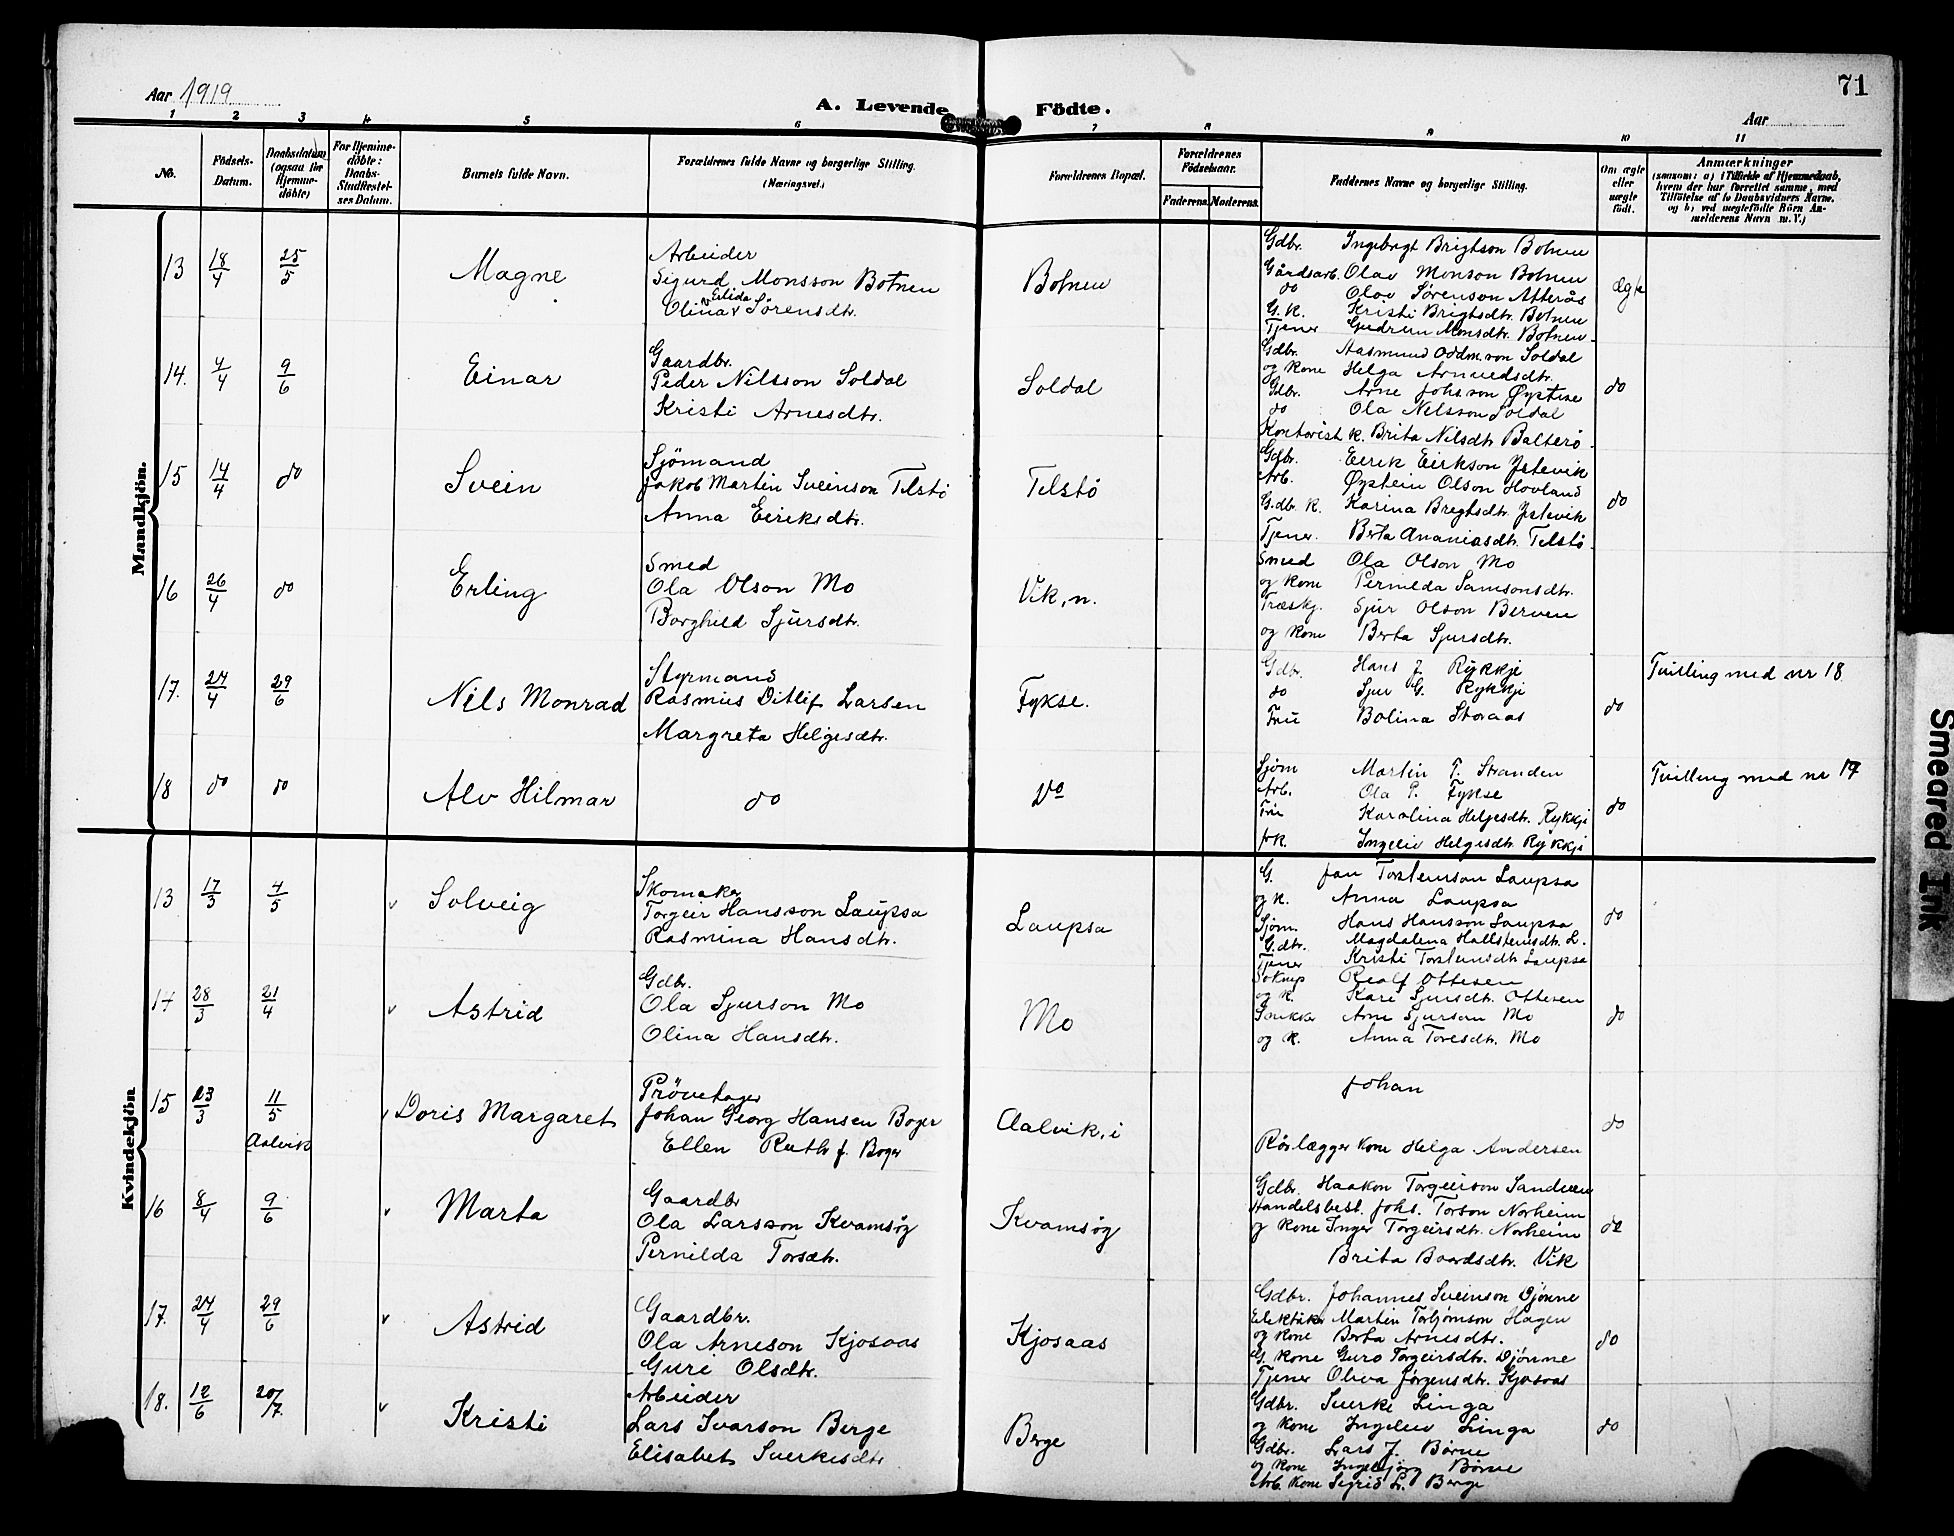 Aar 1919
A. Levende Födte.
71
Aar
1 2 3 4 5 6 7 8 9 10 11
No.
Födsels-Datum.
Daabsdatum (ogsaa for Hjemme-döbte)
For Hjemme-döbte: Daabs-Stadfæstel-ses Datum.
Barnets fulde Navn.
Forældrenes fulde Navne og borgerlige Stilling. (Næringsvei.)
Forældrenes Bopæl.
Forældrenes Födselsaar.
Faderens. Moderens.
Faddernes Navne og borgerlige Stilling.
Om ægte eller uægte födt.
Anmærkninger
(saasom: a) i Tilfælde af Hjemmedaab, hvem der har forrettet samme, med Tilföielse af to Daabsvidners Navne, og b) ved uægtefödte Börn Anmelderens Navn m. V.)
Mandkjön.
13 18/4 25/5 Magne
Arbeider
Sigurd Monsson Botnen
Olina Elida Sørensdtr.
Botnen
Gdbr. Ingebregt Brigtson Botnen
Gårdsarb. Olav Monson Botnen
do Olov Sørenson Atterås
G. K. Kristi Brigtsdtr. Botnen
Tjener Gudrun Monsdtr. Botnen.
Ægte
14. 4/4 9/6 Einar
Gaardbr.
Peder Nilsson Soldal
Kristi Arnesdtr.
Soldal
Gdbr. Aasmund Oddmsson Soldal
og Kone Helga Arnvedsdtr.
Gdbr. Arne Johsson Øystese
do Ola Nilsson Soldal
Kontorist k. Brita Nilsdtr. Balterö.
do
15 14/4 do Svein
Sjömand
Jakob Martin Sveinson Telstö
Anna Eeiriksdtr.
Telstö
Gdbr. Eeirik Eirikson Ystevik
Arb. Øystein Olson Hovland
G.dbr. K. Karina Bregtsdtr. Ystevik
Tjener. Berta Ananiasdtr. Telstö.
do
16 26/4 do Erling
Smed
Ola Olson Mo
Borghild Sjursdtr.
Vik, n.
Smed Ola Olson Mo
og Kone Pernilda Samsonsdtr.
Træskj. Sjur Olson Berven
og Kone Berta Sjursdtr.
do
17. 24/4 29/6 Nils Monrad
Styrmand
Rasmus Ditlef Larsen
Margreta Helgesdtr.
Fykse.
Gdbr. Hans J. Rykkje
do Sjur G. Rykkje
Fru Bolina Storaas
do
Tvilling med nr 18
18 do do Alv Hilmar
do
Do
Sjöm Martin T. Stranden
Arb. Ola P. Fykse
Fru Karolina Helgesdtr. Rykkje
frk. Ingeleiv Helgesdtr. Rykkje
do
Tvilling med nr 17
Kvindekjön
13 17/3 4/5 v Solveig
Skomaker
Torgeir Hansson Laupsa
Rasmina Hansdtr.
Laupsa
G. Jan Torsteinson Laupsa
og K. Anna Laupsa
Sjöm. Hans Hansson Laupsa
G.dtr. Magdalena Hallsteinsdtr. L.
Tjener Kristi Torsteinsdtr Laupsa
do
14 28/3 21/4 v Astrid
Gdbr.
Ola Sjurson Mo
Olina Hansdtr.
Mo
Rolf Ottesen
og K. Kari Sjursdtr. Ottesen
Snikker Arne Sjurson Mo
og K. Anna Toresdtr. Mo
do
15 23/3 11/5 Aalvik v Doris Margaret
Prövetager
Johan Georg Hansen Boger
Ellen Ruth f. Boger
Aalvik, i
Johan
Rörlægger Kone Helga Andersen
do
16 8/4 9/6 v Marta
Gaardbr
Ola Larsson Kvamsøy
Pernilda Torsdtr.
Kvamsøy
Gdbr. Haakon Torgeirson Sandven
Handelsbest. Johs. Torson Norheim
og Kone Inger Torgeirsdtr. Norheim
Brita Baardsdtr. Vik
do
17. 24/4 29/6 v Astrid
Gaardbr.
Ola Arneson Kjosaas
Guri Olsdtr.
Kjosaas
Gdbr. Johannes Sveinson Djönne
Elektriker Martin Torbjörnson Hagen
og Kone Berta Arnesdtr.
G. Kone Guro Torgeirsdtr. Djönne
Tjener Oliva Jørgensdtr. Kjosaas
do
18. 12/6 20/7. v Kristi
Arbeider
Lars Ivarson Berge
Elisabet Sverkesdtr
Berge
Gdbr. Sverke Linga
og Kone Ingeleiv Linga
Gdbr. Lars J. Börve
og Kone Ingebjörg Börve
Arb. Kone Sigrid L. Berge
do
Smeared Ink